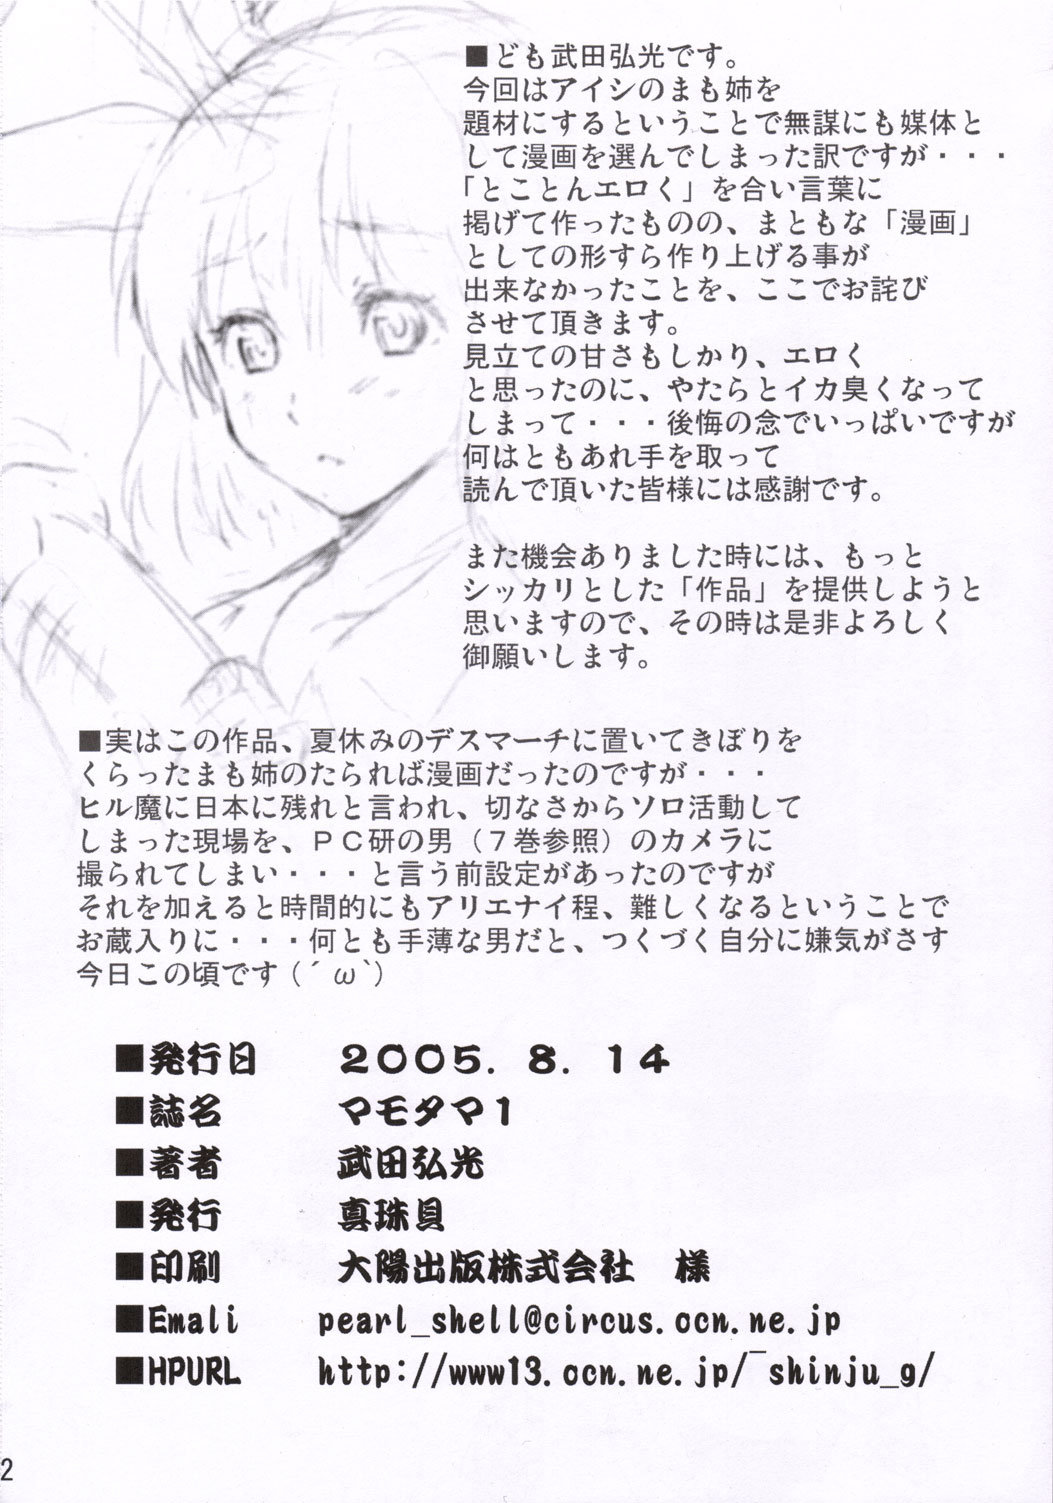 ■ども武田弘光です。
今回はアイシのまも姉を
題材にするということで無謀にも媒体と
して漫画を選んでしまった訳ですが・・・
「とことんエロく」を合い言葉に
掲げて作ったものの、まともな「漫画」
としての形すら作り上げる事が
出来なかったことを、ここでお詫び
させて頂きます。
見立ての甘さもしかり、エロく
と思ったのに、やたらとイカ臭くなって
しまって・・・後悔の念でいっぱいですが
何はともあれ手を取って
読んで頂いた皆様には感謝です。
また機会ありました時には、もっと
シッカリとした「作品」を提供しようと
思いますので、その時は是非よろしく
御願いします。
■実はこの作品、夏休みのデスマーチに置いてきぼりを
くらったまも姉のたられば漫画だったのですが・・・
ヒル魔に日本に残れと言われ、切なさからソロ活動して
しまった現場を、ＰＣ研の男（７巻参照）のカメラに
撮られてしまい・・・と言う前設定があったのですが
それを加えると時間的にもアリエナイ程、難しくなるということで
お蔵入りに・・・何とも手薄な男だと、つくづく自分に嫌気がさす
今日この頃です（´ω`）
■発行日 2005. 8. 14
■誌名 マモタマ1
■著者 武田弘光
■発行 真珠貝
■印刷 大陽出版株式会社 様
■Emali pearl_shell@circus.ocn.ne.jp
■HPURL http://www13.ocn.ne.jp/‾shinju_g/
2